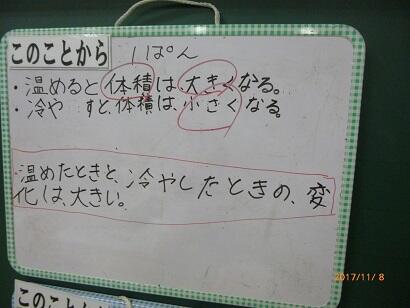 このことから
1ぱん
・温めると体積は、大きくなる。
・冷やすと、体積は、小さくなる。
温めたときと、冷やしたときの、変
化は、大きい。
2017/11/8
このことから